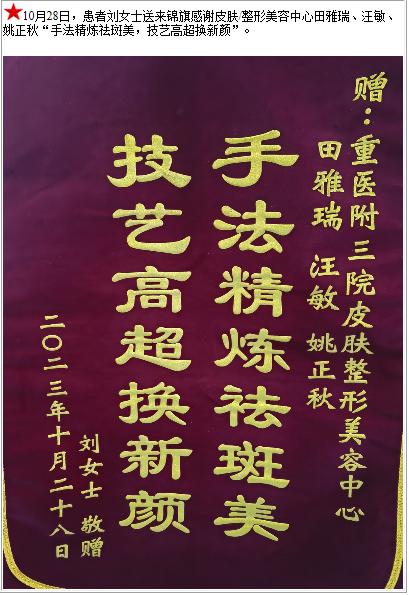 ★10月28日，患者刘女士送来锦旗感谢皮肤/整形美容中心田雅瑞、汪敏、
姚正秋“手法精炼祛斑美，技艺高超换新颜”。
赠：重医附三院皮肤整形美容中心
田雅瑞 汪敏 姚正秋
手法精炼祛斑美
技艺高超换新颜
刘女士 敬赠
二〇二三年十月二十八日